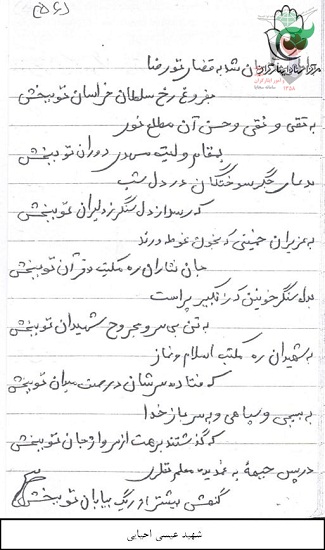 به قضای تو رضا
بفروغ رخ سلطان خراسان تو ببخش
به تقی و نقی و حسن آن مطلع نور
بمقام و لیته مهدی دوران تو ببخش
بدعای جگر سوختگان در دل شب
که رسد از دل سنگر ز دلیران تو ببخش
به عزیزان خمینی که بخون غوطه ورند
جان نثاران ره مکتب و قرآن تو ببخش
بدل سنگر خونین که ز تکبیر پر است
به تن بی سر و مجروح شهیدان تو ببخش
به شهیدان ره مکتب اسلام و نماز
که فتاده سرشان در صف میدان تو ببخش
به بسیجی و سپاهی و به سرباز خدا
که گذشتند برهت از سر و از جان تو ببخش
در پس جبهه به
گنهش بیشتر از ریگ بیابان تو ببخش
شهید عیسی احیایی